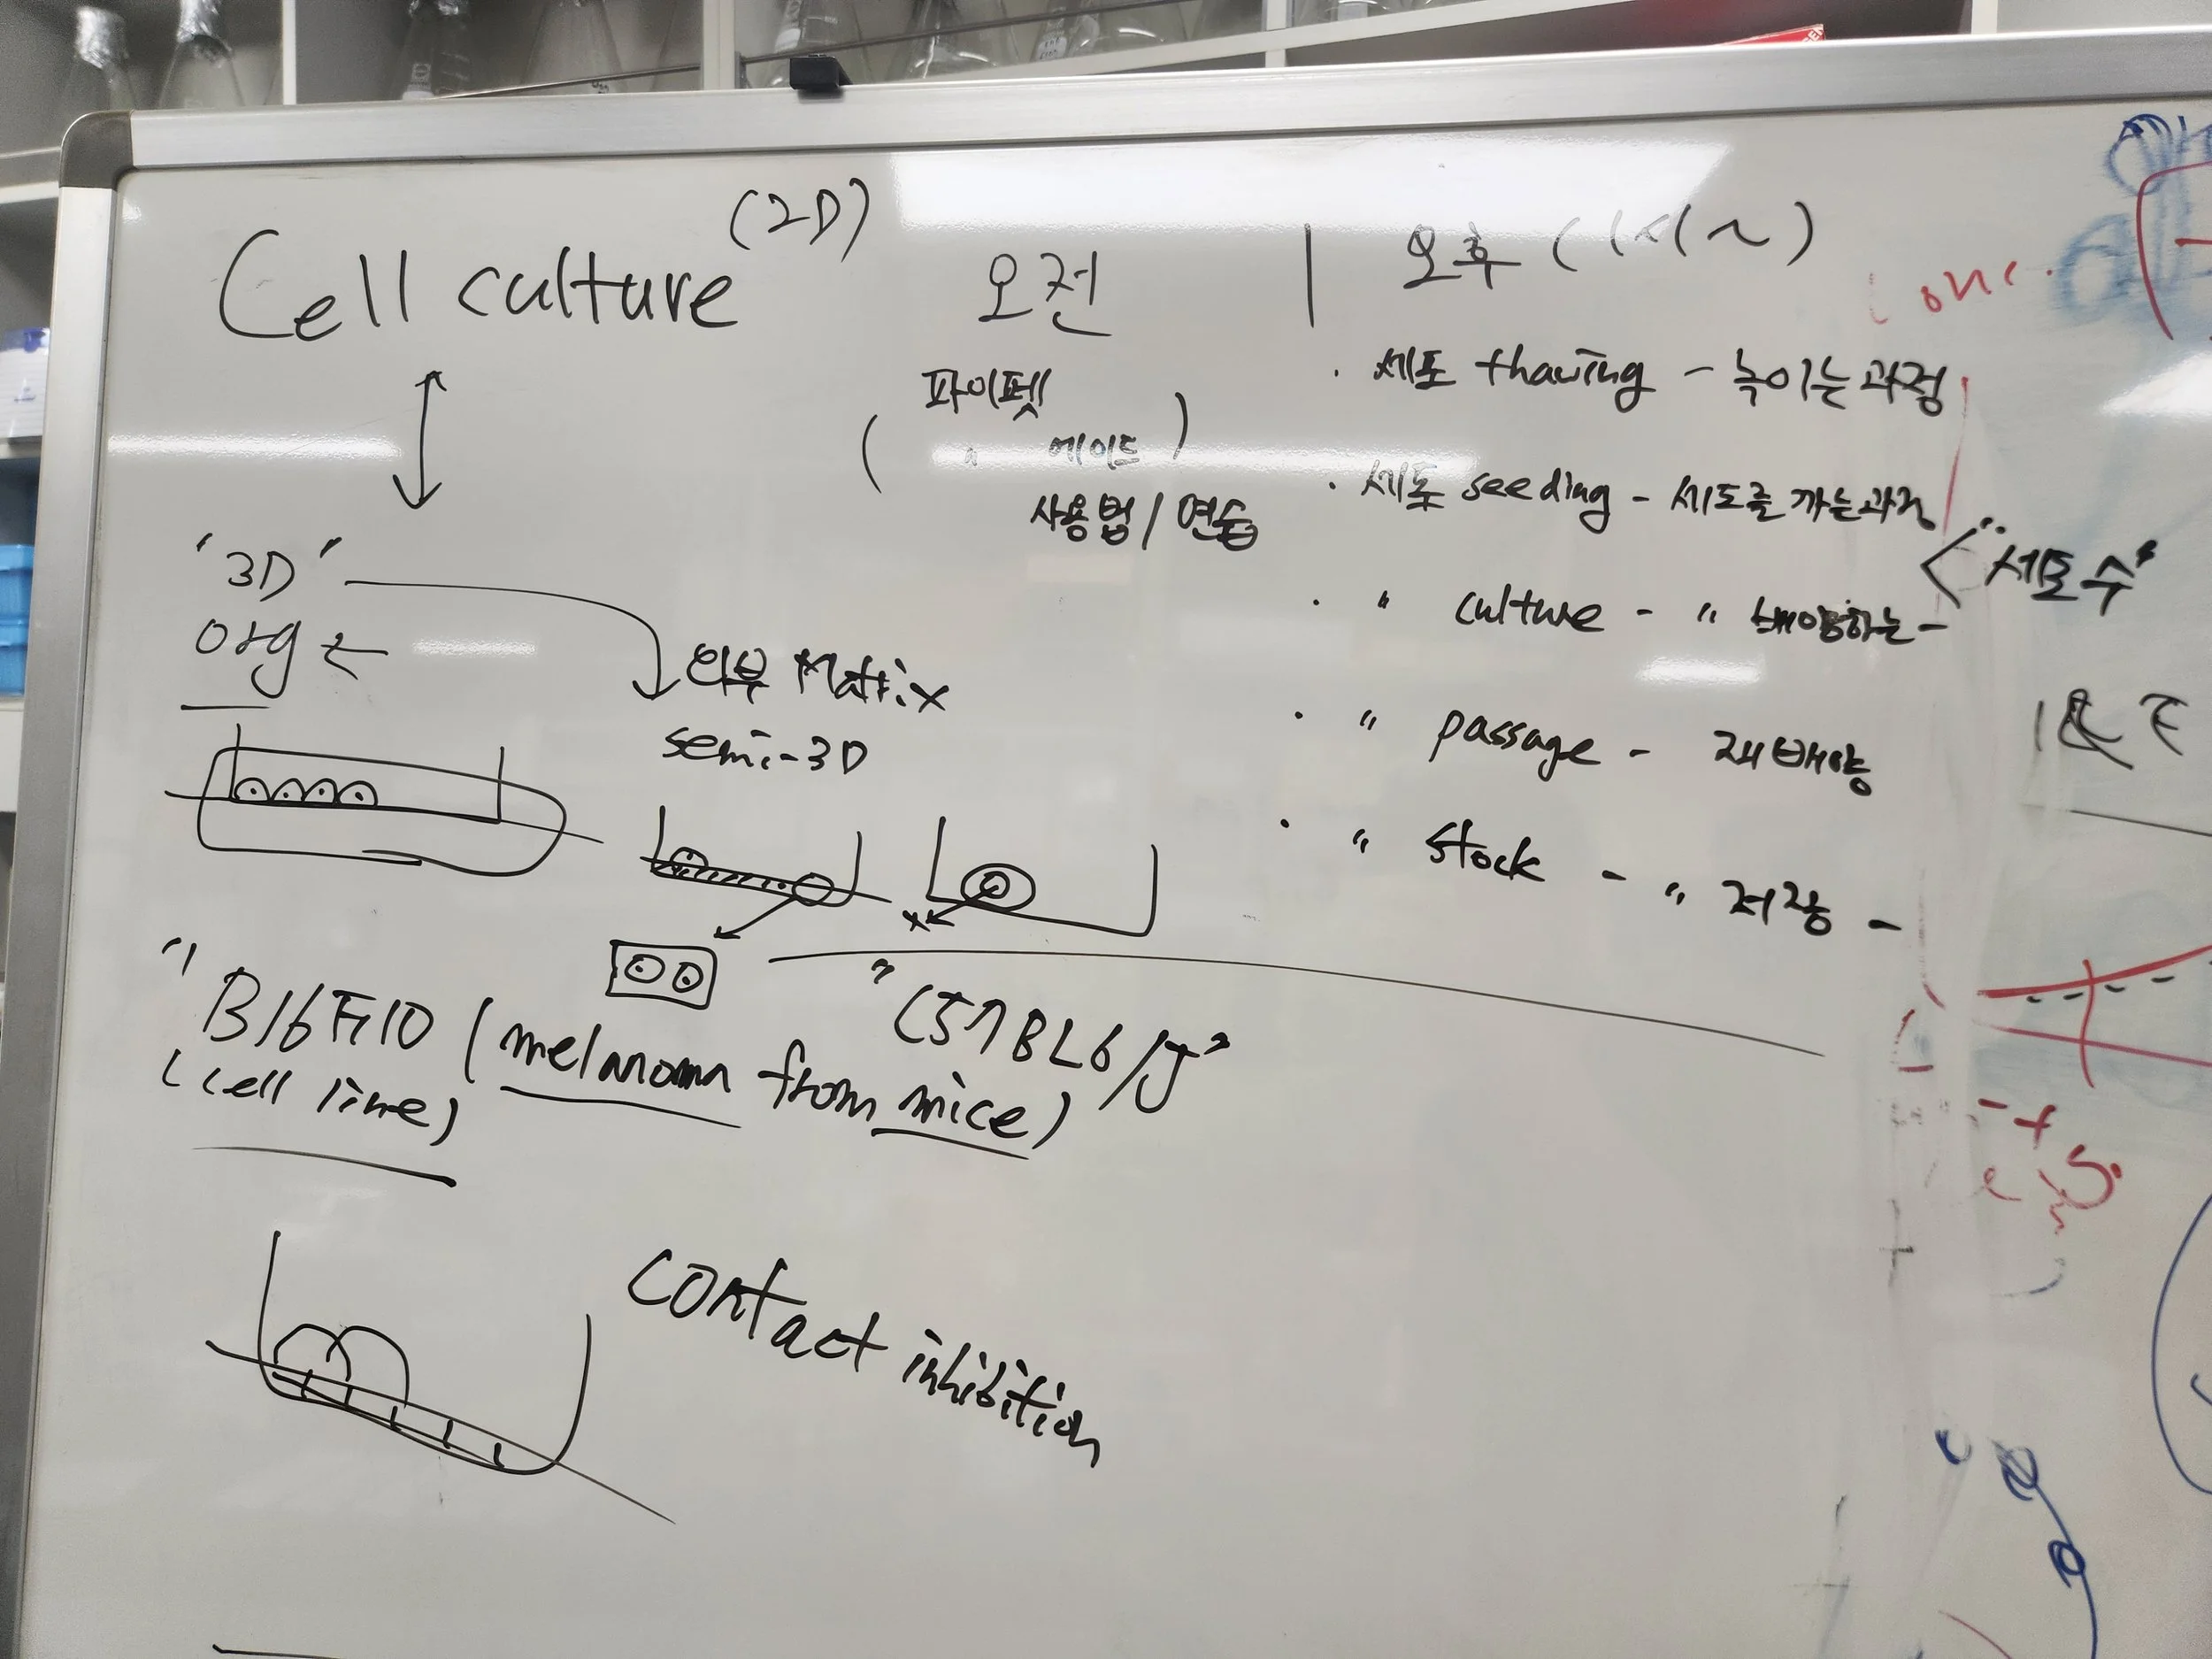 Cell culture (2D)
'3D'
org ←
외부 Matrix
semi-3D
오전
( 파이펫
" 에이드 )
사용법 / 연습
오후 ( 1시 ~ )
· 세포 thawing - 녹이는 과정
· 세포 seeding - 세포를 까는 과정
· " culture - " 배양하는 -
"세포 수"
· " passage - 재배양
· " stock - " 저장 -
"B16F10 (melanoma from mice)
(cell line)
"C57BL6/J"
contact inhibition
conc.